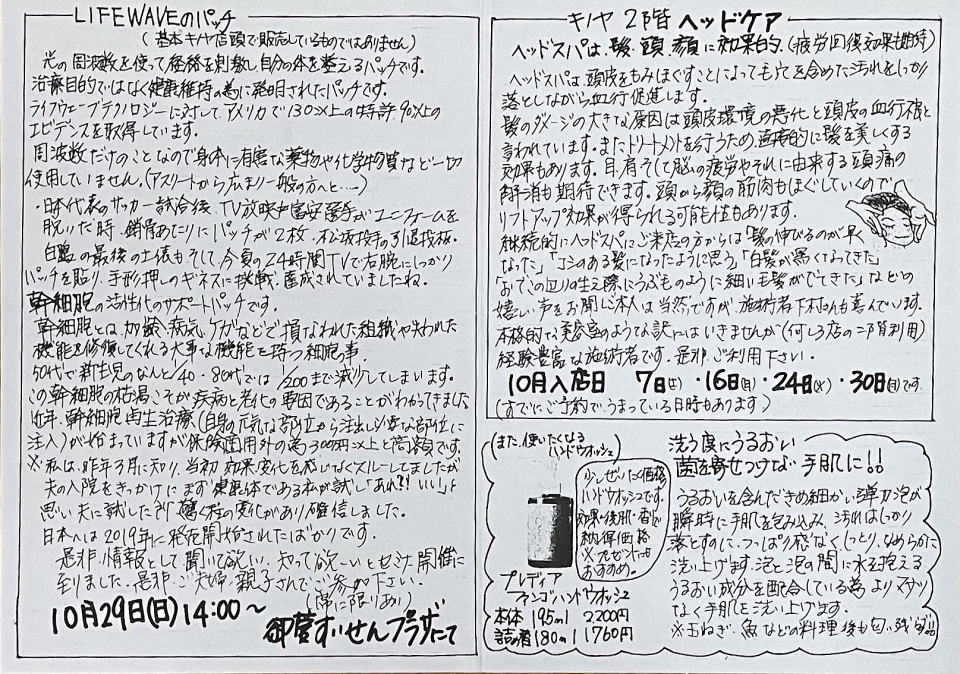 LIFEWAVEのパッチ
(基本キノヤ店頭で販売しているものではありません)
光の周波数を使って経絡を刺激し自分の体を整えるパッチです。
治療目的ではなく健康維持の為に発明されたパッチです。
ライフウェーブテクノロジーに対してアメリカで130以上の特許90以上の
エビデンスを取得しています。
周波数だけのことなので身体に有害な薬物や化学物質など一切
使用していません。(アスリートから広まり一般の方へと…)
・日本代表のサッカー試合後、TV放映中冨安選手がユニフォームを
脱いだ時、鎖骨あたりにパッチが2枚・松坂投手の引退投板・
白鵬の最後の土俵もそして今夏の24時間TVで右腕にしっかり
パッチを貼り、手形押しのギネスに挑戦、達成されていましたね。
幹細胞の活性化のサポートパッチです。
幹細胞とは加齢、病気、ケガなどで損なわれた組織や失われた
機能を修復してくれる大事な機能を持つ細胞の事。
50代で新生児のなんと1/40・80代では1/200まで減少してしまいます。
この幹細胞の枯渇こそが疾病と老化の要因であることがわかってきました
近年、幹細胞再生治療(自身の元気な部位から注出し必要な部位に
注入)が始まっていますが保険適用外の為300万円以上と高額です。
※私は、昨年3月に知り、当初効果変化を感じなくスルーしてましたが
夫の入院をきっかけにまず健康体である私が試し「あれ?!いい!」と
思い夫に試した所、驚く程の変化があり確信しました。
日本へは2019年に発売開始されたばかりです。
是非、情報として聞いて欲しい、知って欲しいとセミナー開催に
至りました。是非、ご夫婦・親子さんでご参加下さい。
(席に限りあり)
10月29日(日)14:00〜
御菅すいせんプラザにて
キノヤ 2階 ヘッドケア
ヘッドスパは、髪、頭、顔に効果的。(疲労回復効果も期待)
ヘッドスパは、頭皮をもみほぐすことによって毛穴を含めた汚れをしっかり
落としながら血行促進します。
髪のダメージの大きな原因は頭皮環境の悪化と頭皮の血行不良と
言われています。またトリートメントを行うため、直接的に髪を美しくする
効果もあります。耳、肩そして脳の疲労やそれに由来する頭痛の
解消も期待できます。頭から顔の筋肉もほぐしていくので
リフトアップ効果が得られる可能性もあります。
継続的にヘッドスパにご来店の方からは「髪の伸びるのが早く
なった」「コシのある髪になったように思う」「白髪が黒くなってきた」
「おでこの辺りの生え際にうぶ毛のように細い毛髪がでてきた」などの
嬉しい声をお聞きし本人は当然ですが、施術者下村さんも喜んでいます。
本格的な美容室のような訳にはいきませんが(何しろ店の二階利用)
経験豊富な施術者です。是非ご利用下さい。
10月入店日 7日(土)・16日(月)・24日(火)・30日(月)です。
(すでにご予約でうまっている日時もあります)
(また、使いたくなる
ハンドウォッシュ)
少しぜいたく価格
ハンドウォッシュです。
効果・後肌・香で
納得価格
※プレゼントにも
おすすめ。
プレディア
ファンゴハンドウォッシュ
本体 195ml 2200円
詰め替 180ml 1760円
洗う度にうるおい
菌を寄せつけない手肌に!!
うるおいを含んだきめ細かい弾力泡が
瞬時に手肌を包み込み、汚れはしっかり
落とすのに、つっぱり感なく、しっとり、なめらかに
洗い上げます。泡と泡の間に水を抱える
うるおい成分を配合している為よりマサツ
なく手肌を洗い上げます。
※玉ねぎ、魚などの料理後も匂い残らず!!